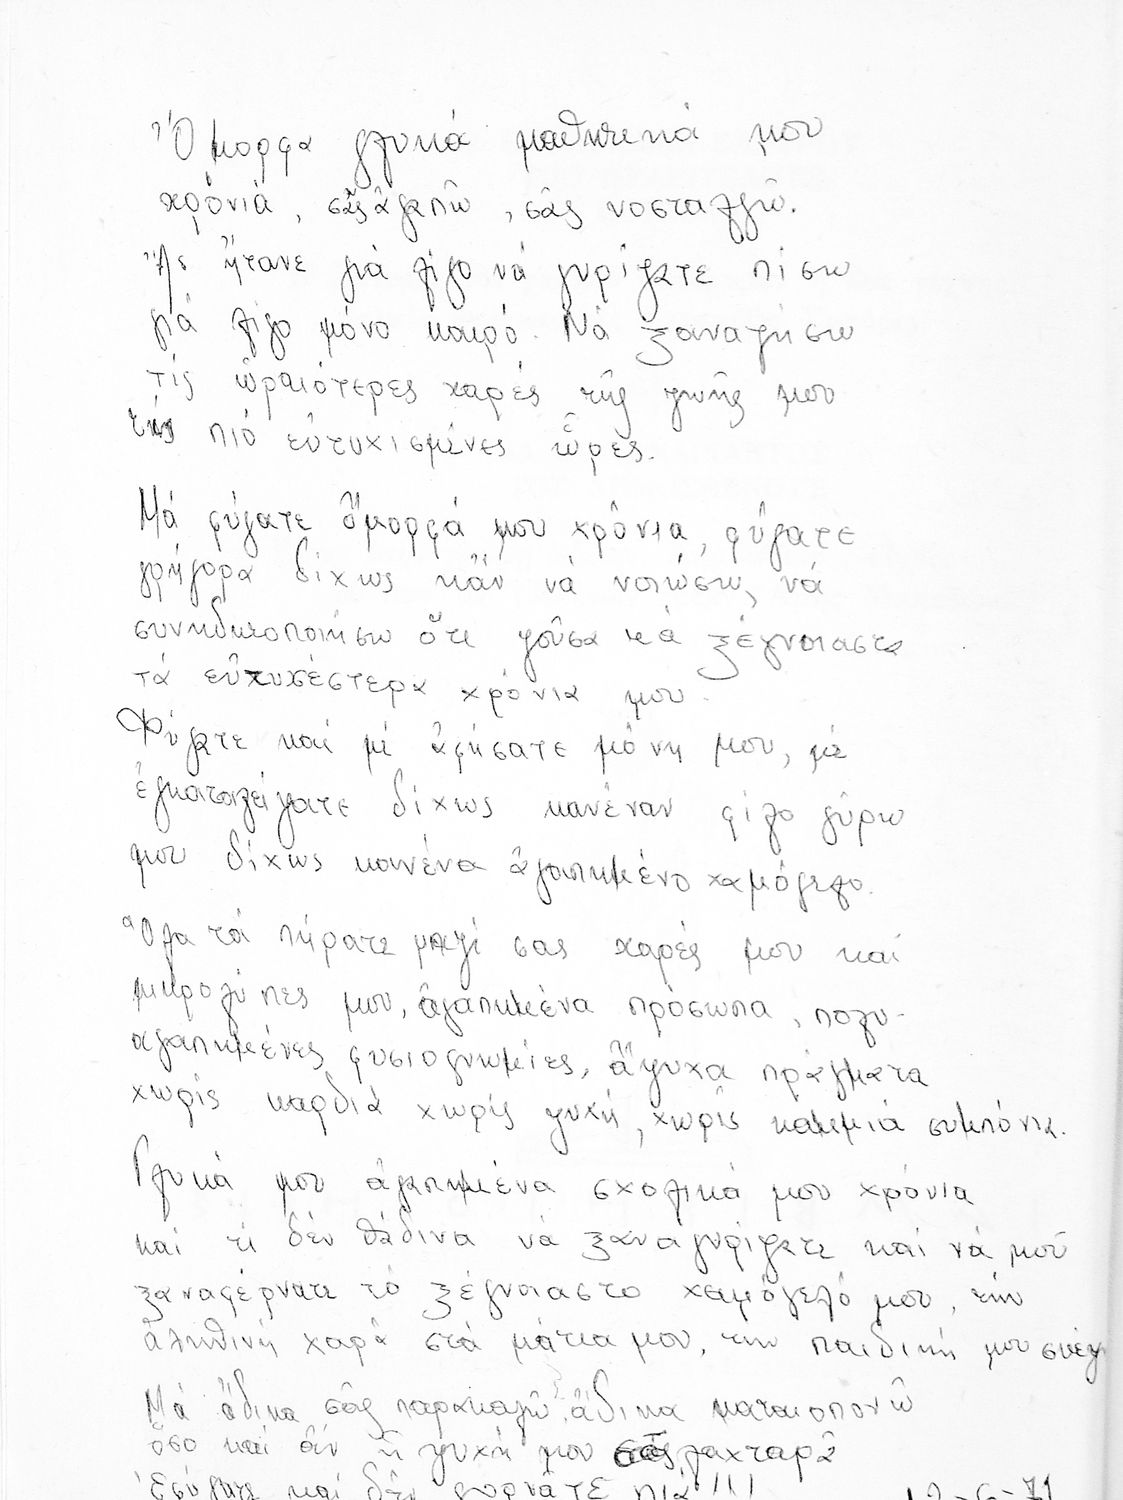 Ὄμορφα γλυκά μαθητικά μου
χρόνια, σᾶς ἀγαπῶ, σᾶς νοσταλγῶ.
Ἄς ἤτανε γιά λίγο νά γυρίζατε πίσω
γιά λίγο μόνο καιρό. Νά ξαναζήσω
τίς ὡραιότερες χαρές τῆς ζωῆς μου
τίς πιό εὐτυχισμένες ὧρες.
Μά φύγατε ὄμορφά μου χρόνια, φύγατε
γρήγορα δίχως κἄν νά νοιώσω, νά
συνηδητοποιήσω ὅτι ζοῦσα τά ξέγνοιαστα
τά εὐτυχέστερα χρόνια μου.
Φύγατε καί μέ ἀφήσατε μόνη μου, μέ
ἐγκαταλείψατε δίχως κανέναν φίλο γύρω
μου δίχως κανένα ἀγαπημένο χαμόγελο.
Ὅλα τά πήρατε μαζί σας χαρές μου καί
μικρολύπες μου, ἀγαπημένα πρόσωπα, πολυ-
αγαπημένες φυσιογνωμίες, ἄψυχα πράγματα
χωρίς καρδιά χωρίς ψυχή, χωρίς καμμιά συμπόνια.
Γλυκά μου ἀγαπημένα σχολικά μου χρόνια
καί τί δέν θἄδινα νά ξαναγυρίζατε καί νά μοῦ
ξαναφέρνατε τό ξέγνοιαστο χαμόγελό μου, τήν
ἀληθινή χαρά στά μάτια μου, την παιδική μου
Μά ἄδικα σᾶς παρακαλῶ, ἄδικα ματαιοπονῶ
ὅσο καί ἄν ἡ ψυχή μου σᾶς λαχταρᾶ
καί δέν γυρνᾶτε πιά!!!